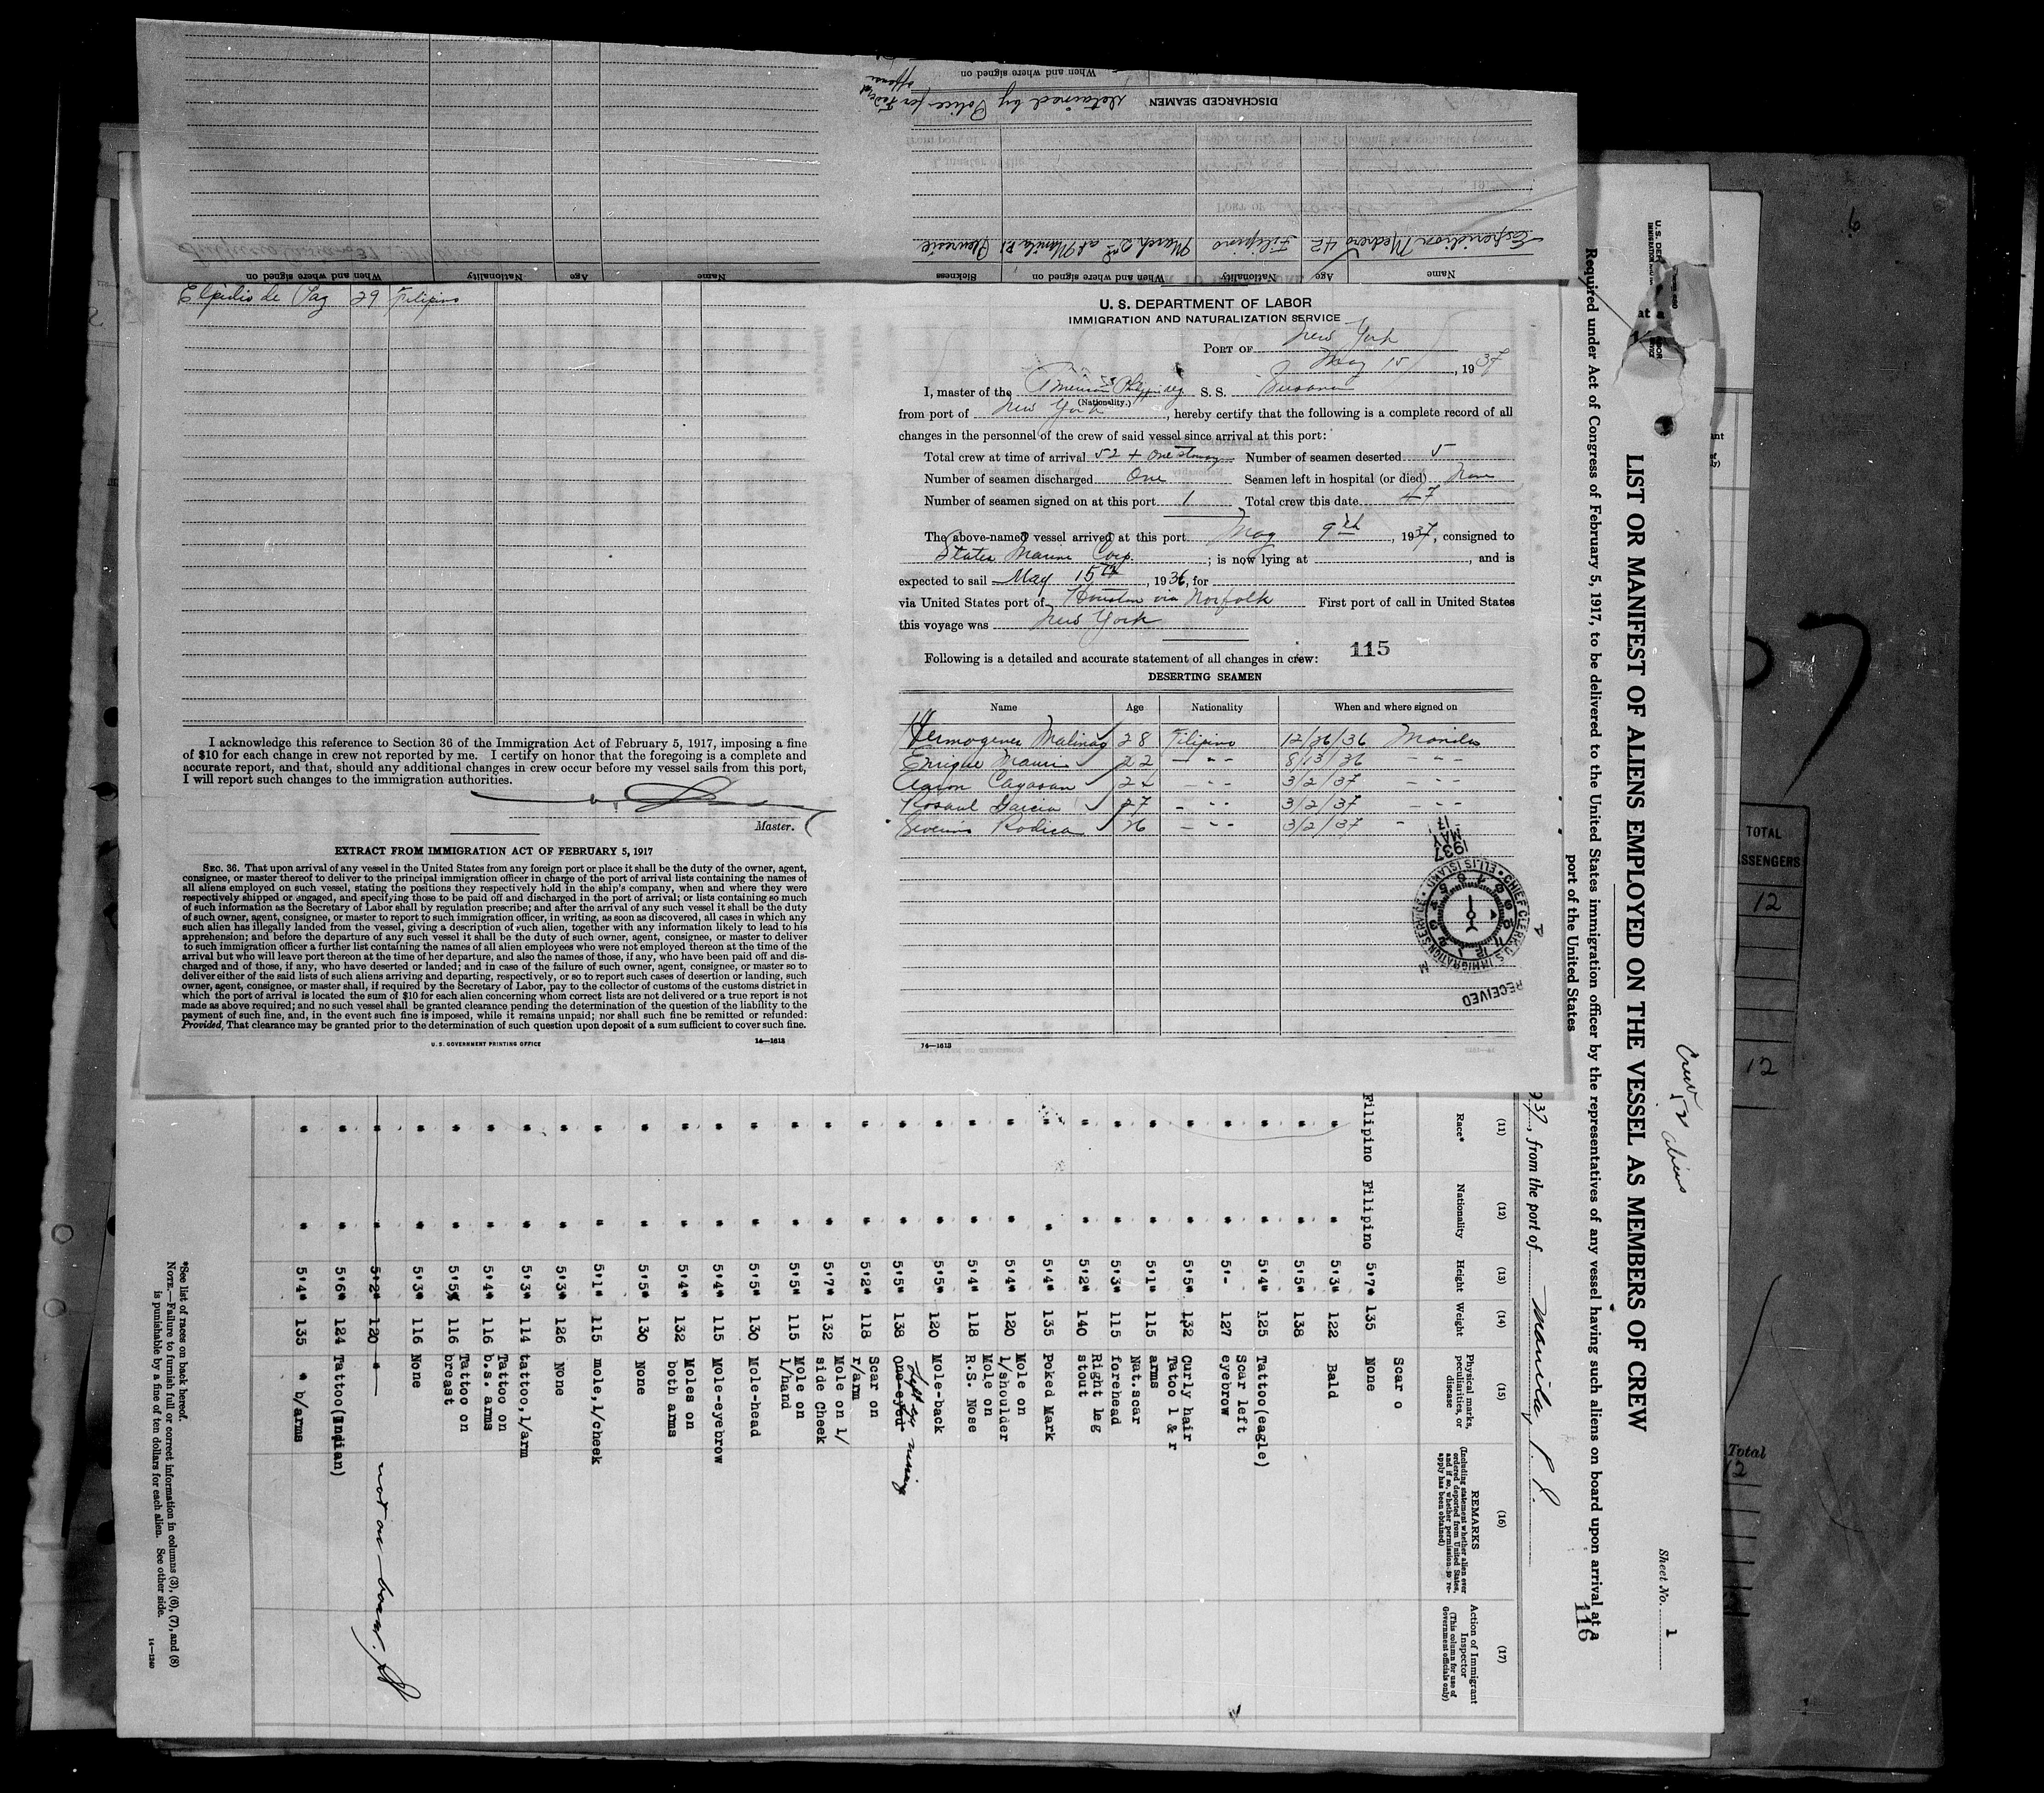 When and where signed on
DISCHARGED SEAMEN
detained by Police for Federal offense
Esperidion Medrero 42 Filipino March 2nd at Manila P.I. Pleuresie
Name Age Nationality When and where signed on Sickness
Name Age Nationality When and where signed on
Elpidio de Paz 29 Filipino
I acknowledge this reference to Section 36 of the Immigration Act of February 5, 1917, imposing a fine
of $10 for each change in crew not reported by me. I certify on honor that the foregoing is a complete and
accurate report, and that, should any additional changes in crew occur before my vessel sails from this port,
I will report such changes to the immigration authorities.
Master.
EXTRACT FROM IMMIGRATION ACT OF FEBRUARY 5, 1917
SEC. 36. That upon arrival of any vessel in the United States from any foreign port or place it shall be the duty of the owner, agent,
consignee, or master thereof to deliver to the principal immigration officer in charge of the port of arrival lists containing the names of
all aliens employed on such vessel, stating the positions they respectively hold in the ship's company, when and where they were
respectively shipped or engaged, and specifying those to be paid off and discharged in the port of arrival; or lists containing so much
of such information as the Secretary of Labor shall by regulation prescribe; and after the arrival of any such vessel it shall be the duty
of such owner, agent, consignee, or master to report to such immigration officer, in writing, as soon as discovered, all cases in which any
such alien has illegally landed from the vessel, giving a description of such alien, together with any information likely to lead to his
apprehension; and before the departure of any such vessel it shall be the duty of such owner, agent, consignee, or master to deliver
to such immigration officer a further list containing the names of all alien employees who were not employed thereon at the time of the
arrival but who will leave port thereon at the time of her departure, and also the names of those, if any, who have been paid off and dis-
charged and of those, if any, who have deserted or landed; and in case of the failure of such owner, agent, consignee, or master so to
deliver either of the said lists of such aliens arriving and departing, respectively, or so to report such cases of desertion or landing, such
owner, agent, consignee, or master shall, if required by the Secretary of Labor, pay to the collector of customs of the customs district in
which the port of arrival is located the sum of $10 for each alien concerning whom correct lists are not delivered or a true report is not
made as above required; and no such vessel shall be granted clearance pending the determination of the question of the liability to the
payment of such fine, and, in the event such fine is imposed, while it remains unpaid; nor shall such fine be remitted or refunded:
Provided, That clearance may be granted prior to the determination of such question upon deposit of a sum sufficient to cover such fine.
U. S. GOVERNMENT PRINTING OFFICE 14—1613
U. S. DEPARTMENT OF LABOR
IMMIGRATION AND NATURALIZATION SERVICE
PORT OF New York
May 15, 1937
I, master of the S. S.
(Nationality.)
from port of New York, hereby certify that the following is a complete record of all
changes in the personnel of the crew of said vessel since arrival at this port:
Total crew at time of arrival 52 + one stoway Number of seamen deserted 5
Number of seamen discharged One Seamen left in hospital (or died) None
Number of seamen signed on at this port 1 Total crew this date 47
The above-named vessel arrived at this port May 9th, 1937, consigned to
States Marine Corp.; is now lying at , and is
expected to sail May 15th, 1936, for
via United States port of Houston via Norfolk First port of call in United States
this voyage was New York
Following is a detailed and accurate statement of all changes in crew: 115
DESERTING SEAMEN
Name Age Nationality When and where signed on
Hermogenes Malinao 28 Filipino 12/26/36 Manila
Enrique 22 - - - 8/13/36 - - -
Cayasan 22 - - - 3/2/37 - - -
Garcia 27 - - - 3/2/37 - - -
Severino Rodica 26 - - - 3/2/37 -
1937 MAY 17
RECEIVED
CHIEF CLERK U.S. IMMIGRATION SERVICE ELLIS ISLAND
14—1613
U. S. DEP
LABOR
at a
Sheet No. 1
Crew 52 aliens
LIST OR MANIFEST OF ALIENS EMPLOYED ON THE VESSEL AS MEMBERS OF CREW
Required under Act of Congress of February 5, 1917, to be delivered to the United States immigration officer by the representatives of any vessel having such aliens on board upon arrival at a
port of the United States
116
937, from the port of Manila, P. I.
(11) (12) (13) (14) (15) (16) (17)
Race* Nationality Height Weight Physical marks, peculiarities, or disease REMARKS (Including statement whether alien ever ordered deported from United States, and if so, whether permission to reapply has been obtained) Action of Immigrant Inspector (This column for use of Government officials only)
Scar o
Filipino Filipino 5'7" 135 None
" " 5'3" 122 Bald
" " 5'5" 138
" " 5'4" 125 Tattoo(eagle)
" " 5'- 127 Scar left eyebrow
" " 5'5" 132 Curly hair
" " 5'1" 115 Tatoo l & r arms
" " 5'3" 115 Nat.scar forehead
" " 5'2" 140 Right leg stout
" " 5'4" 135 Poked Mark
" " 5'4" 120 Mole on l/shoulder
" " 5'4" 118 Mole on R.S. Nose
" " 5'5" 120 Mole-back
" " 5'5" 138 One-eyed Left eye missing
" " 5'2" 118 Scar on r/arm
" " 5'7" 132 Mole on l/ side Cheek
" " 5'5" 115 Mole on l/hand
" " 5'5" 130 Mole-head
" " 5'4" 115 Mole-eyebrow
" " 5'4" 132 Moles on both arms
" " 5'5" 130 None
" " 5'1" 115 mole,l/cheek
" " 5'3" 126 None
" " 5'3" 114 tattoo,l/arm
" " 5'4" 116 Tattoo on b.s. arms
" " 5'5" 116 Tattoo on breast
" " 5'3" 116 None
" " 5'2" 120 " not on board.
" " 5'6" 124 Tattoo(Indian)
" " 5'4" 135 " b/arms
*See list of races on back hereof.
NOTE.—Failure to furnish full or correct information in columns (3), (6), (7), and (8)
is punishable by a fine of ten dollars for each alien. See other side.
14—1240
TOTAL
SSENGERS
12
12
Total
12